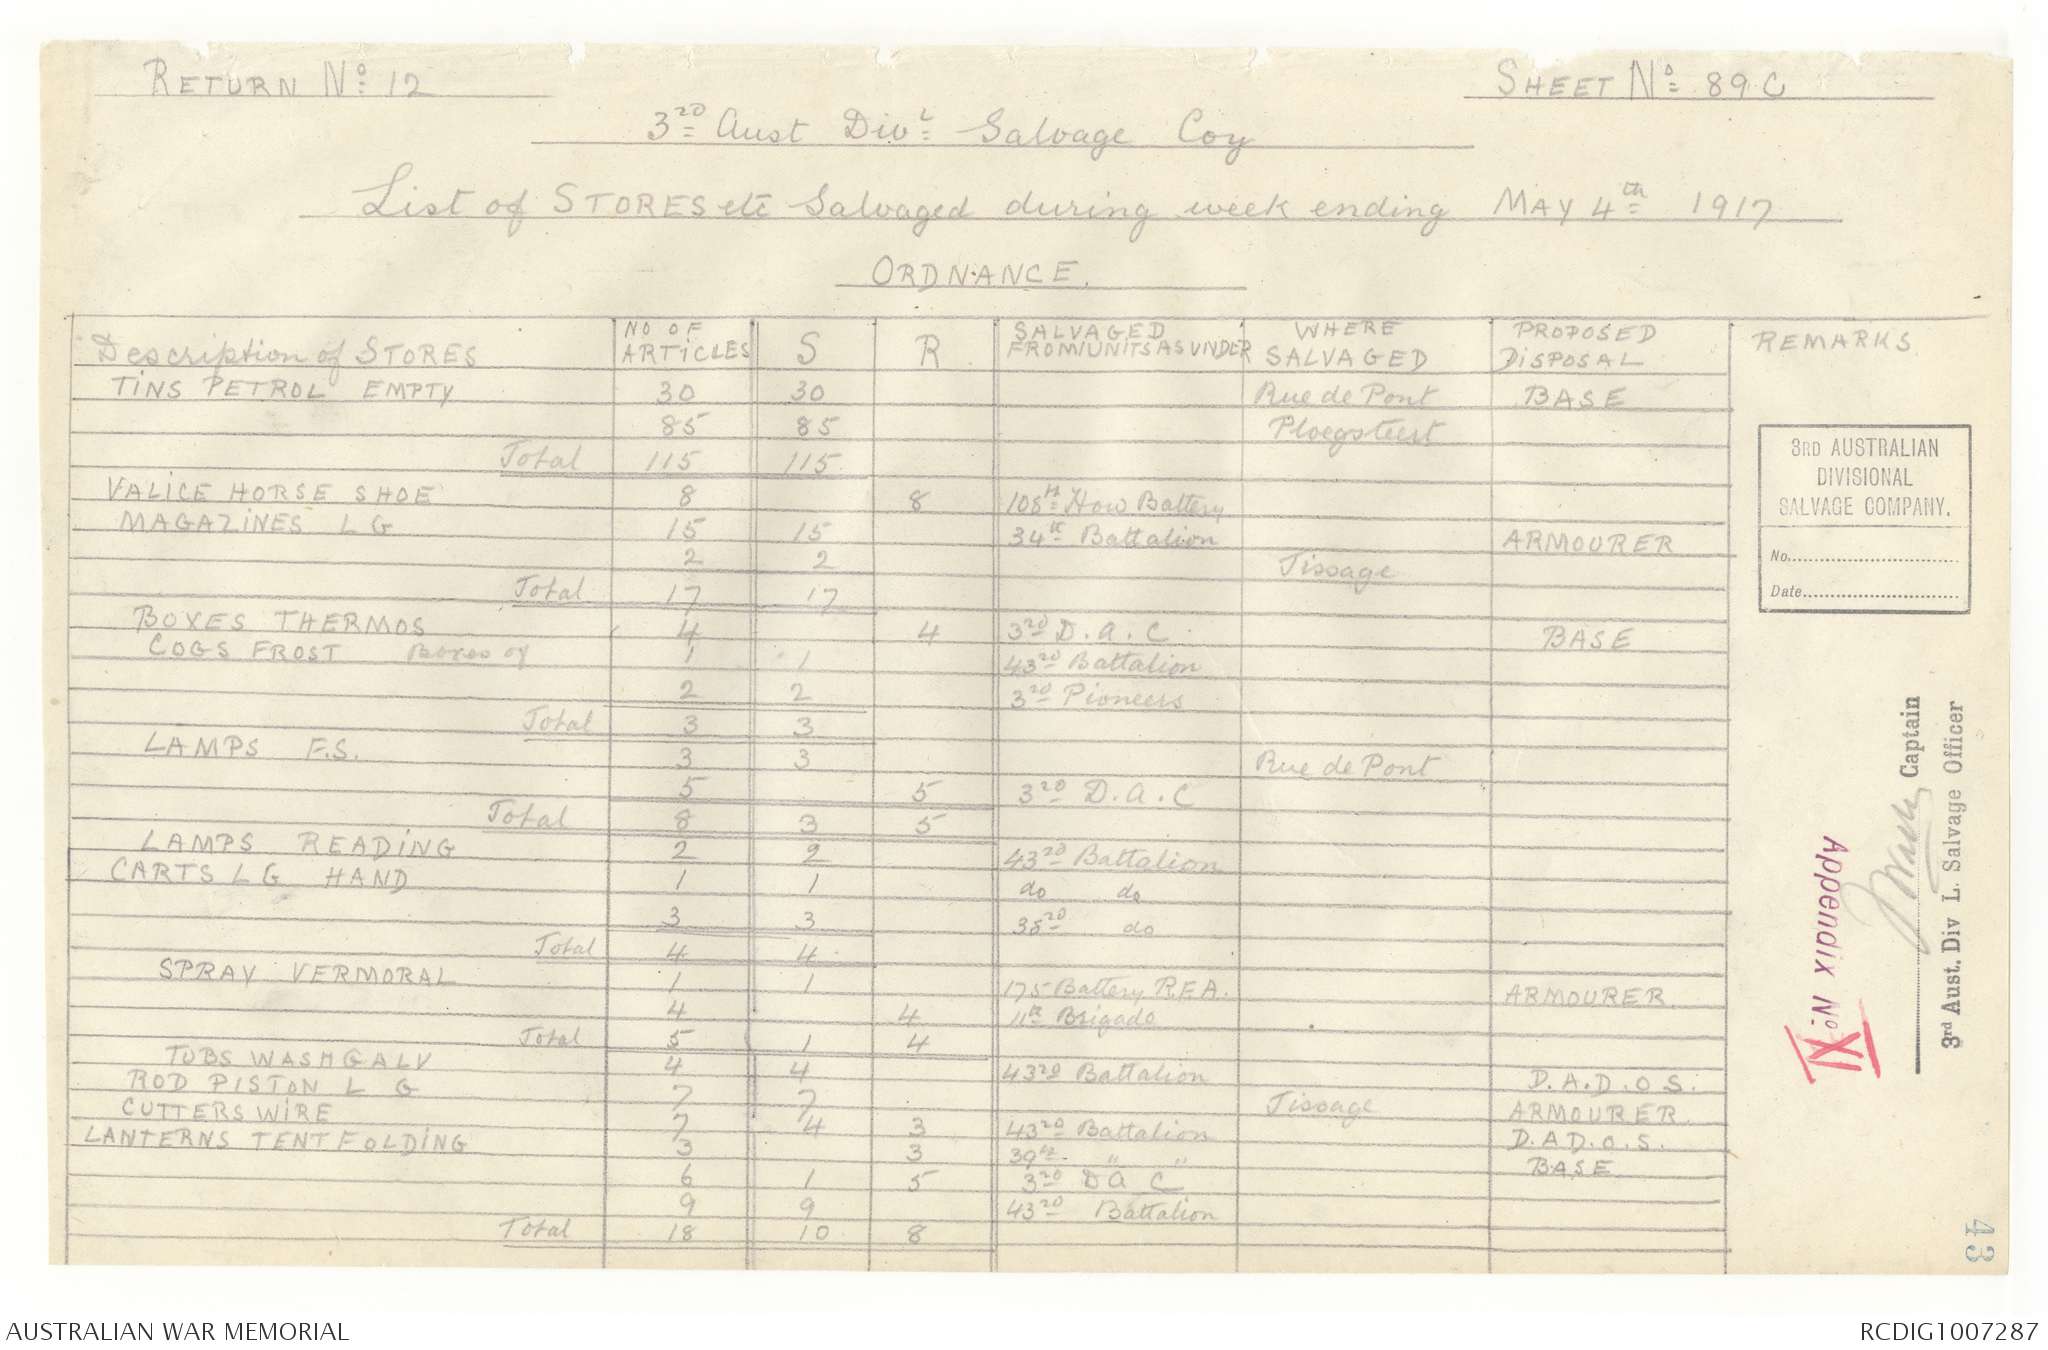 RETURN No 12
SHEET No 89 C
3rd Aust Divl Salvage Coy
List of STORES etc Salvaged during week ending MAY 4th 1917
ORDNANCE.
Description of STORES | NO OF ARTICLES | S | R. | SALVAGED FROM/UNITS AS UNDER | WHERE SALVAGED | PROPOSED DISPOSAL | REMARKS
TINS PETROL EMPTY 30 30 Rue de Pont BASE
85 85 Ploegsteert
Total 115 115
VALICE HORSE SHOE 8 8 108th How Battery
MAGAZINES L G 15 15 34th Battalion ARMOURER
2 2 Tissage
Total 17 17
BOXES THERMOS 4 4 3rd D.A.C. BASE
COGS FROST Boxes of 1 1 43rd Battalion
2 2 3rd Pioneers
Total 3 3
LAMPS F.S. 3 3 Rue de Pont
5 5 3rd D.A.C
Total 8 3 5
LAMPS READING 2 2 43rd Battalion
CARTS L G HAND 1 1 do do
3 3 35rd do
Total 4 4
SPRAY VERMORAL 1 1 175 Battery R.F.A. ARMOURER
4 4 11th Brigade
Total 5 1 4
TUBS WASH GALV 4 4 43rd Battalion D.A.D.O.S.
ROD PISTON L G 7 7 Tissage ARMOURER
CUTTERS WIRE 7 4 3 43rd Battalion D.A.D.O.S.
LANTERNS TENT FOLDING 3 3 39th " " BASE
6 1 5 3rd D A C
9 9 43rd Battalion
Total 18 10 8
3RD AUSTRALIAN
DIVISIONAL
SALVAGE COMPANY.
No.
Date
Captain
3rd Aust. Div L. Salvage Officer
Appendix No
IX
43
AUSTRALIAN WAR MEMORIAL
RCDIG1007287